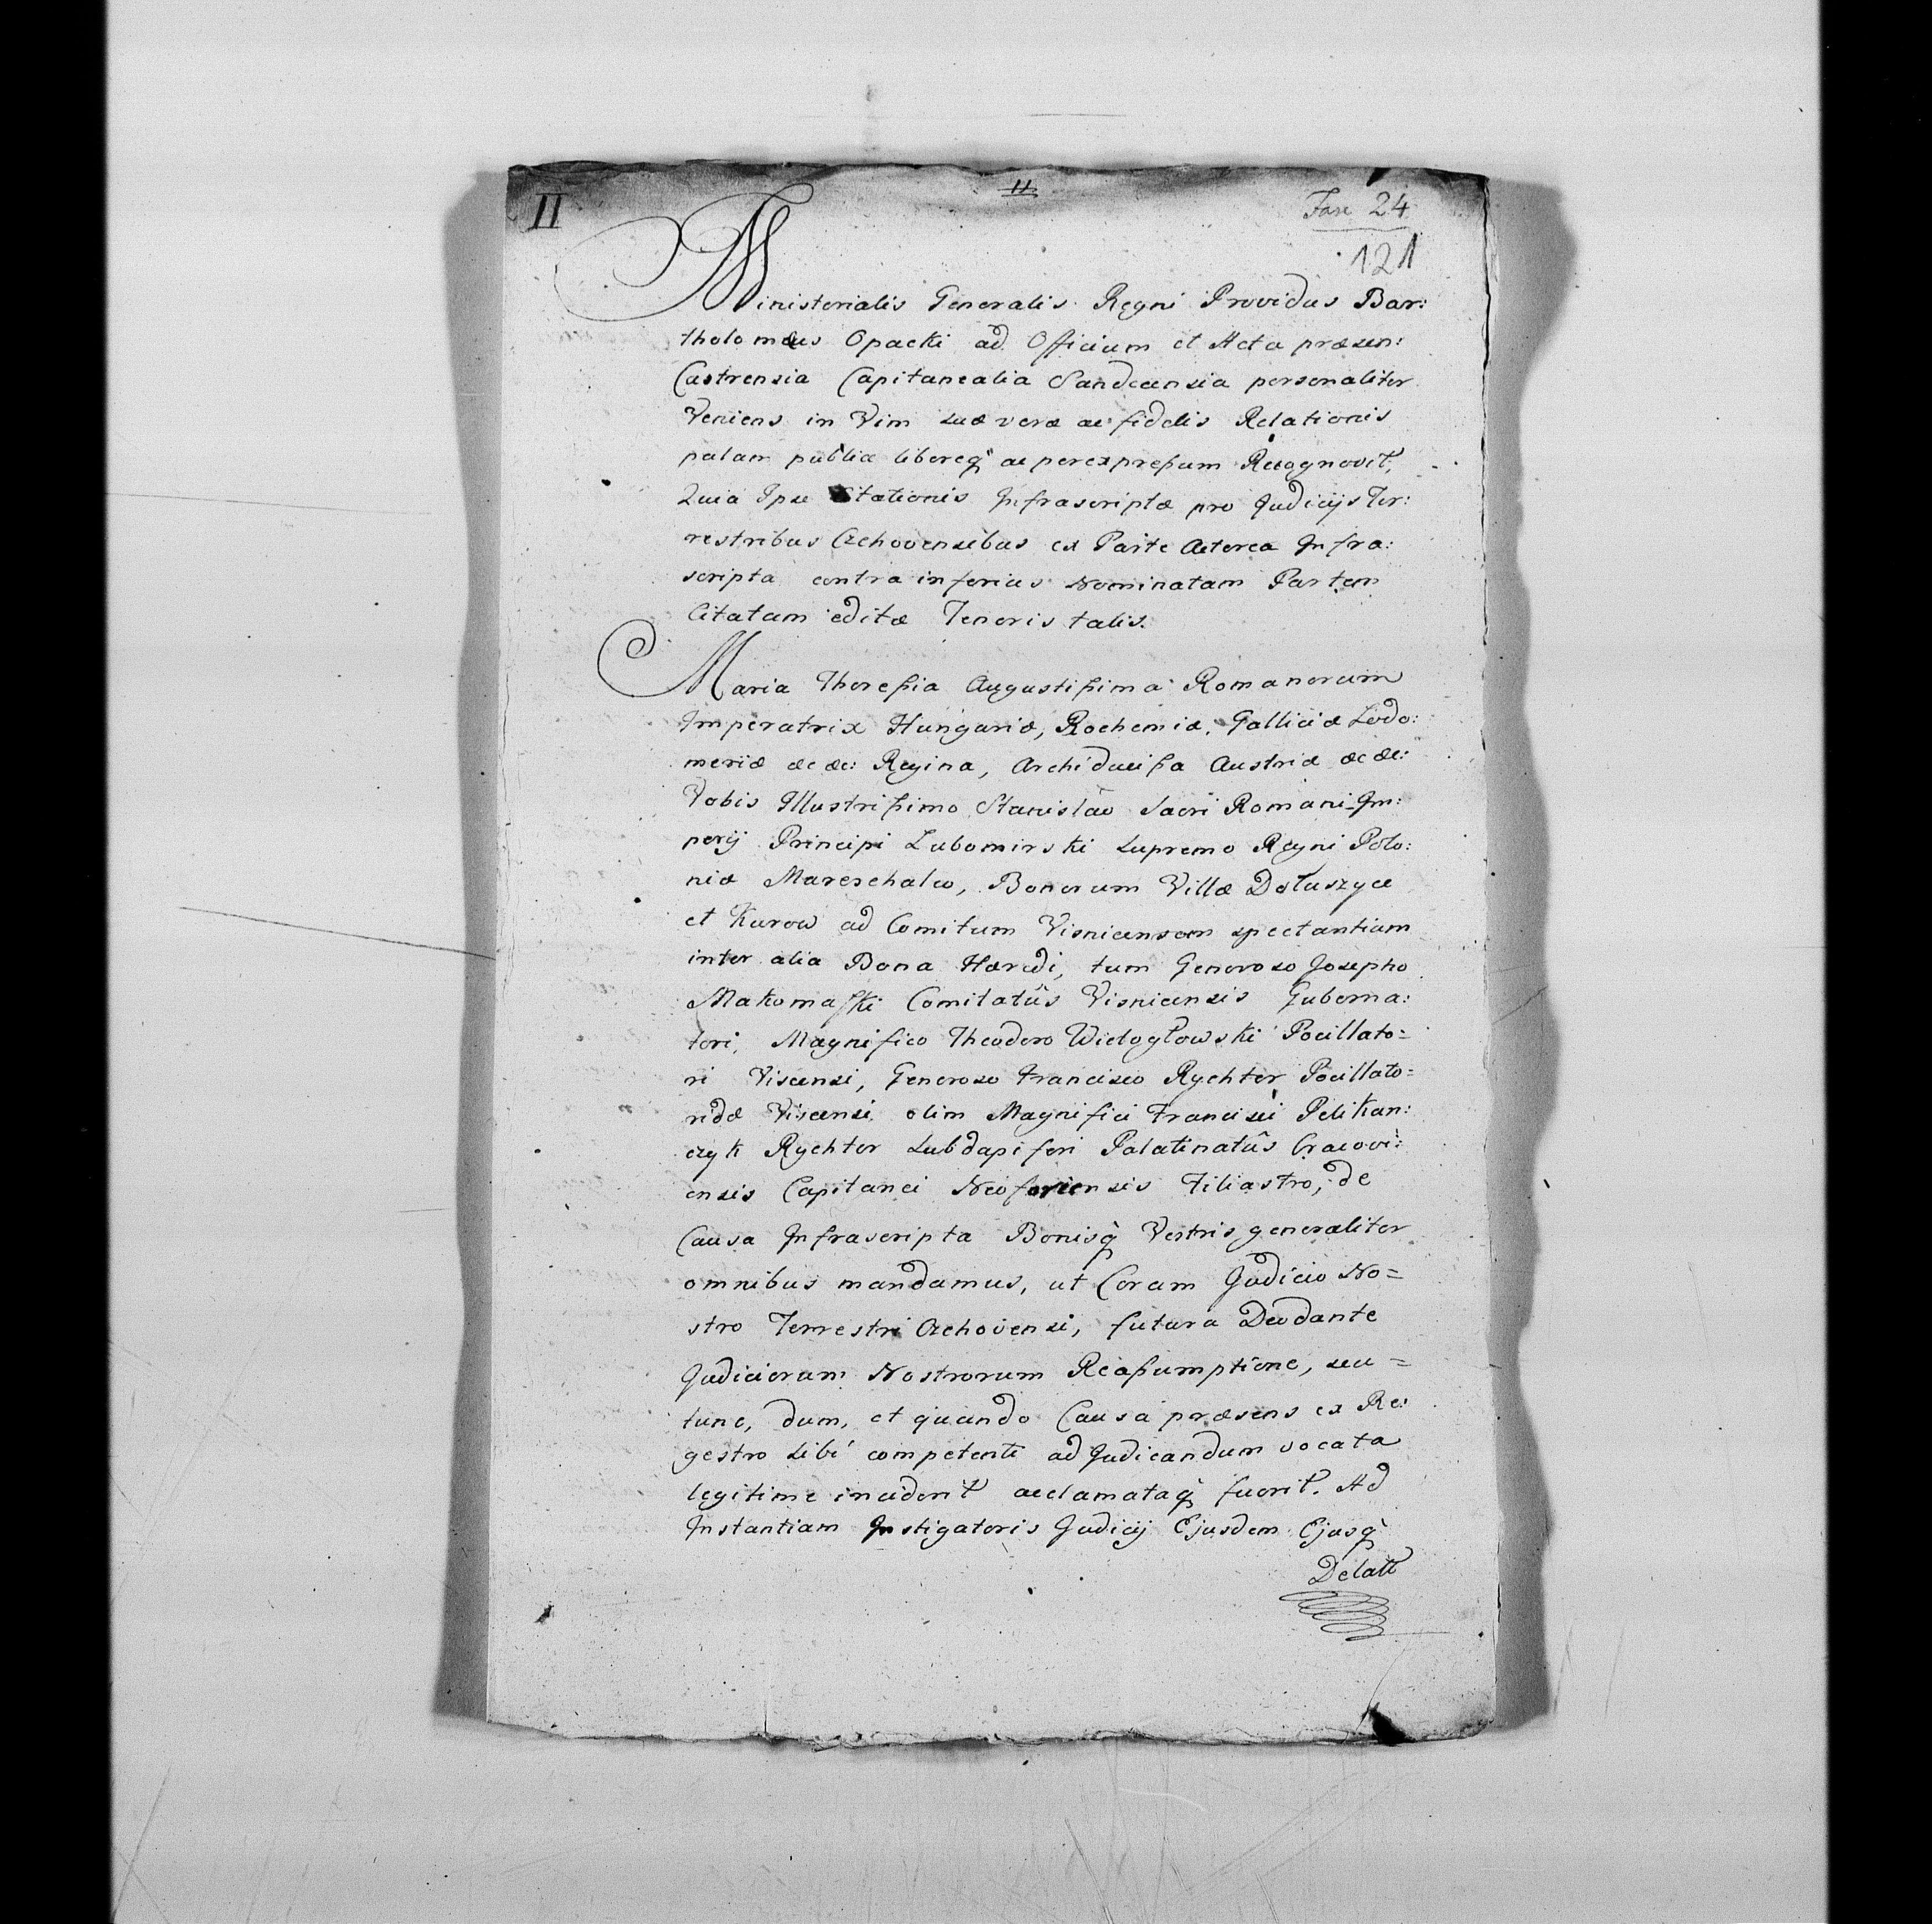 II
11
Fasc 24
121
Ministerialis Generalis Regni Providus Bar:
tholomæus Opacki ad Officium et Acta præsen:
Castrensia Capitanealia Sandecensia personaliter
Veniens in Vim suæ veræ ac fidelis Relationis
palam publice libereq́ ac per expressum Recognovit,
Quia Ipse Citationis Infrascriptæ pro Judicijs Ter:
restribus Czchovensibus ex Parte Actorea Infra:
scripta contra inferius Nominatam Partem
Citatam editæ Tenoris talis.
Maria Theressia Augustissima Romanorum
Imperatrix Hungariæ, Bochemiæ, Galliciæ Lodo:
meriæ &c &c: Regina, Archiducissa Austriæ &c &c:
Vobis Illustrissimo Stanislao Sacri Romani Im:
perij Principi Lubomirski Supremo Regni Polo:
niæ Mareschalco, Bonorum Villæ Dołuszyce
et Kurow ad Comitum Visnicensem spectantium
inter alia Bona Hæredi, tum Generoso Josepho
Makomaski Comitatûs Visnicensis Guberna:
tori, Magnifico Theodoro Wielogłowski Pocillato=
ri Viscensi, Generoso Francisco Rychter Pocillato=
ridæ Viscensi olim Magnifici Francisci Pelikan:
czyk Rychter Subdapiferi Palatinatûs Cracovi:
ensis Capitanei Neoforiensis Filiastro, de
Causa Infrascripta Bonisq́ Vestris generaliter
omnibus mandamus, ut Coram Judicio No=
stro Terrestri Czchoviensi, futura Deo dante
Judiciorum Nostrorum Reassumptione, seu=
tunc, dum, et quando Causa præsens ex Re:
gestro sibi competenti ad Judicandum vocata
legitime inciderit acclamataq́ fuerit. Ad
Instantiam Instigatoris Judicij Ejusdem Ejusq́
Delati